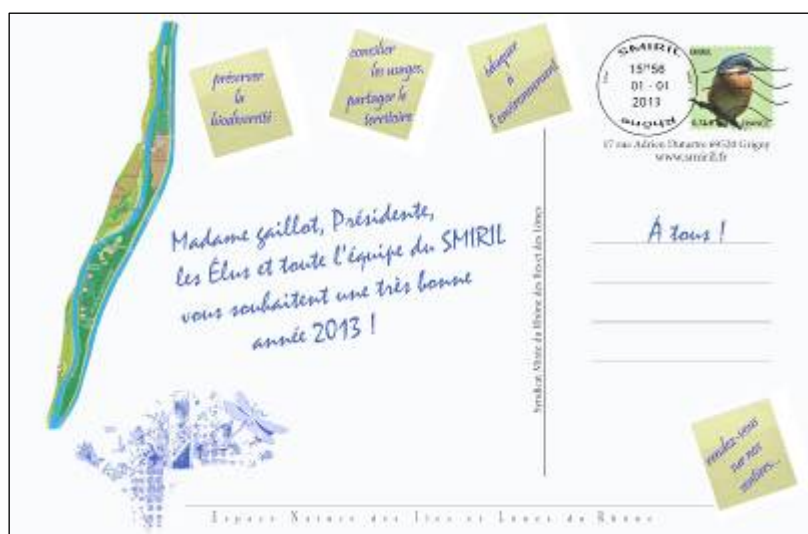 préserver
la
biodiversité
concilier
les usages,
partager le
territoire
éduquer
à
l'environnement
SMIRIL
15H58
01 - 01
2013
Rhône
FRANCE
17 rue Adrien Dutartre 69520 Grigny
www.smiril.fr
Madame gaillot, Présidente,
les Élus et toute l'équipe du SMIRIL
vous souhaitent une très bonne
année 2013 !
À tous !
Syndicat Mixte du Rhône des Iles et des Lônes
rendez-vous
sur nos
sentiers...
Espace Nature des Iles et Lônes du Rhône